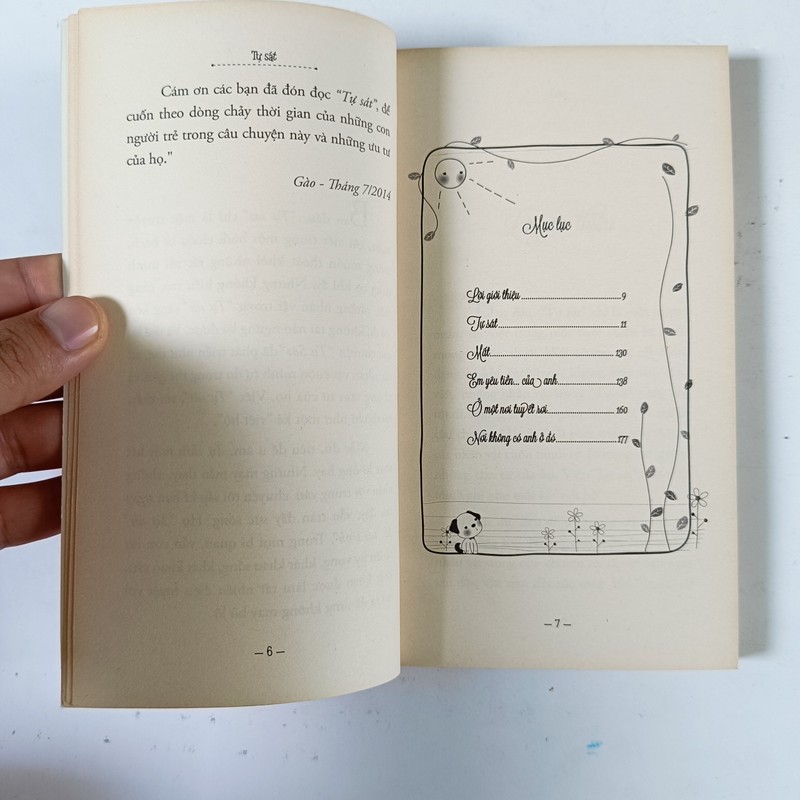 Tự sát
Cám ơn các bạn đã đón đọc “Tự sát”, để
cuốn theo dòng chảy thời gian của những con
người trẻ trong câu chuyện này và những ưu tư
của họ."
Gào - Tháng 7/2014
– 6 –
Mục lục
Lời giới thiệu..............................9
Tự sát..............................11
Mất..............................130
Em yêu tiền... của anh..............................138
Ở một nơi tuyết rơi..............................160
Nơi không có anh ở đó..............................177
– 7 –